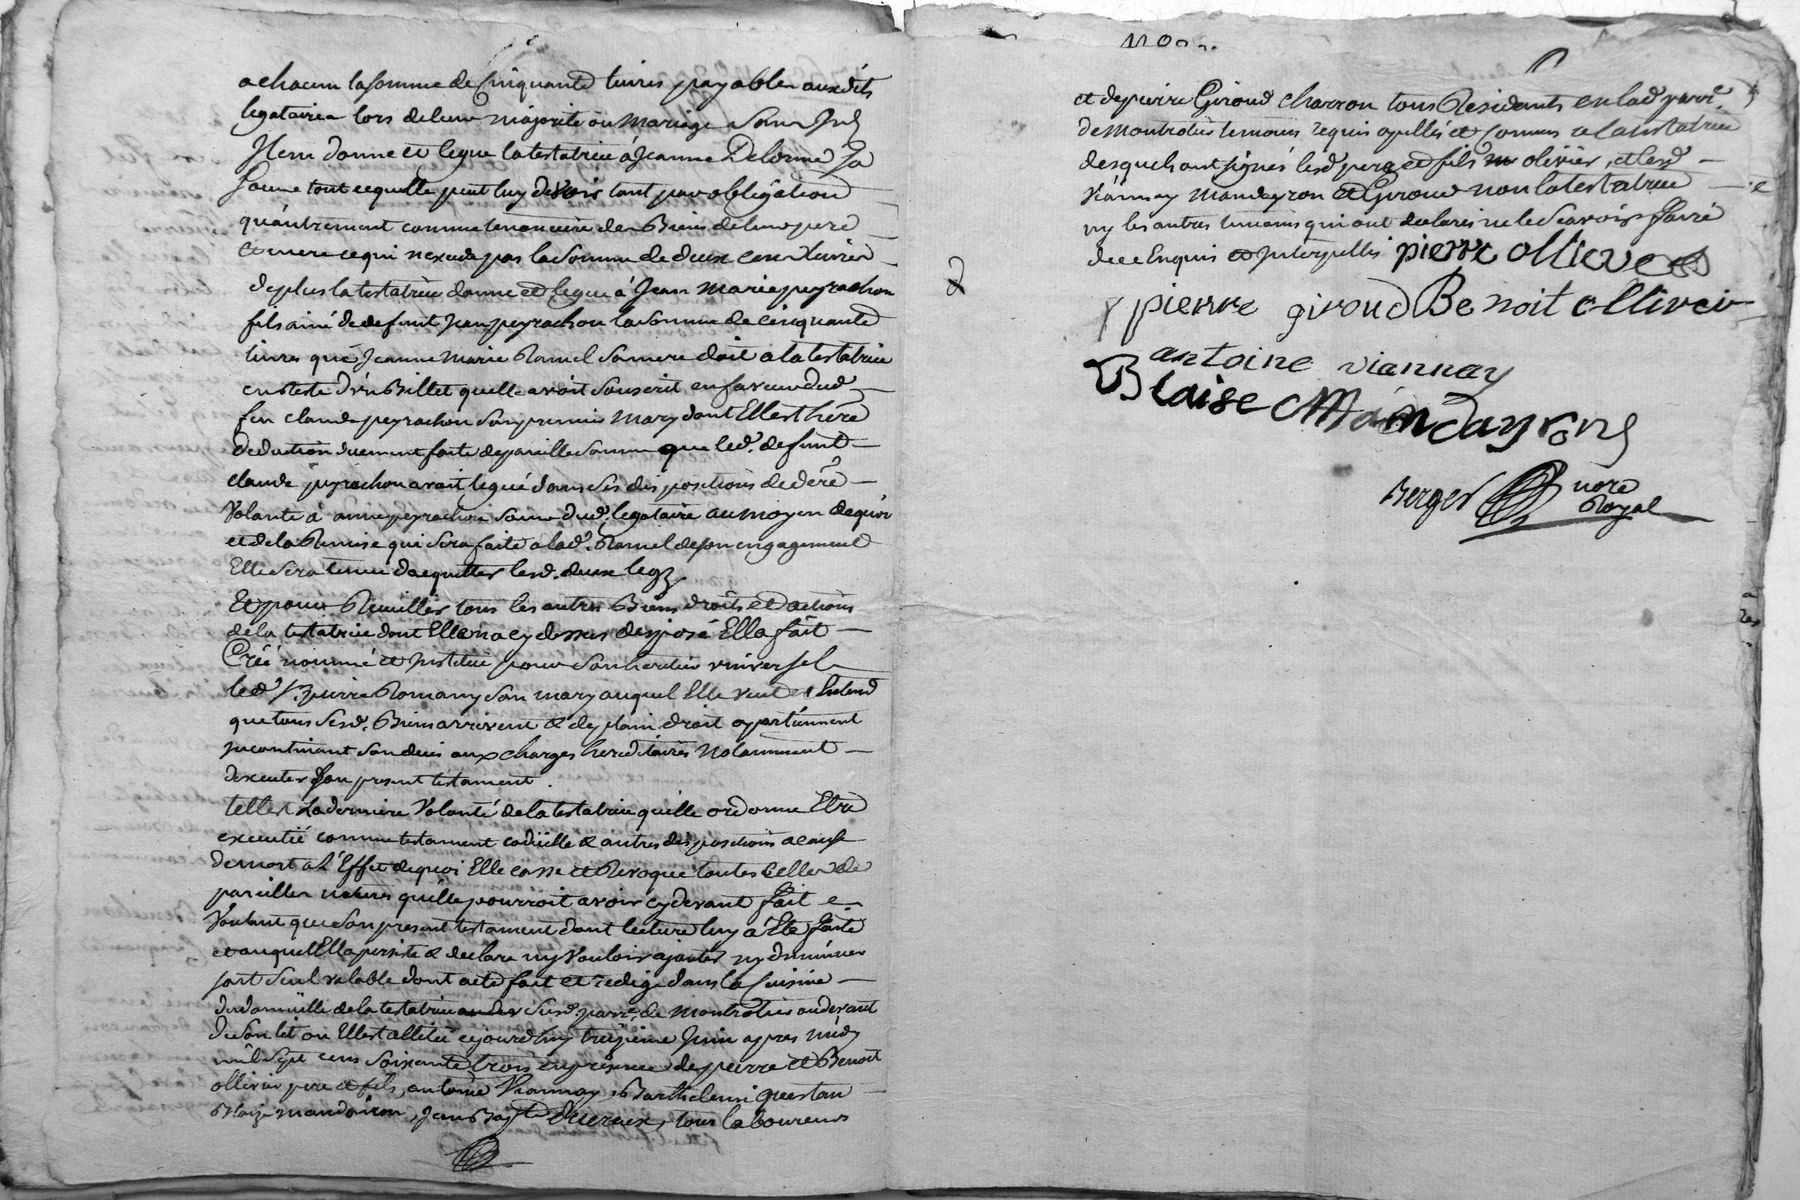 a chacun la somme de Cinquante livres payables auxdits
legataires lors de leur majorité ou Mariage sans
Item donne et legue la testatrice a Jeanne Delorme sa
tout ce quelle peut luy devoir tant par obligation
quautrement comme tenanciere des Biens de leur pere
et mere ce qui nexcede pas la somme de deux cens Livres
de plus la testatrice donne et legue a Jean Marie peyrachon
fils ainé de defunt Jean peyrachon la somme de cinquante
livres que Jeanne Marie Ramel sa mere doit a la testatrice
en reste d'un Billet quelle avoit souscrit en faveur dud.
feu claude peyrachon son premier Mary dont Elle est here
deduction duement faite de pareille somme que led. defunt
claude peyrachon avoit legué dans ses dispositions de dere
Volonté a anne peyrachon soeur dud. legataire au moyen de quoi
et de la Remise qui sera faite a lad. Ramel de son engagement
Elle sera tenue dacquitter lesd. deux legz
Et pour Recueillir tous les autres Biens droits et actions
de la testatrice dont Elle na cy dessus disposé Ella fait
Créé nommé et Institué pour son heritier universel
led. Sr. pierre Romany son mary auquel Elle veut et Entend
que tous sesd. Biens arrivent & de plain droit appartiennent
incontinant son deces aux charges hereditaires Notamment
dexecuter son present testament.
telle est La derniere Volonté de la testatrice quelle ordonne Etre
executée comme testament codicille & autres dispositions a cause
de mort a l'Effet de quoi Elle casse et Revoque toutes Celles de
pareilles natures quelle pourroit avoir cy devant fait e
Voulant que son present testament dont lecture luy a Eté faite
et auquel Ella persisté & declare ny Vouloir ajouter ny diminuer
soit seul valable dont acte fait et redigé dans la Cuisine
du domicille de la testatrice susd. parre. de Montrotier au devant
de son lit ou Elle est allitée cejourdhuy treizieme Juin apres midy
mil sept cens soixante trois en presence de pierre et Benoit
ollivier pere et fils, antoine Viannay, Barthelemi
Blaize mandairon, Jean Bapte. Ducreux, tous laboureurs
et de pierre Giroud charron tous Residants en lad. parre.
de Montrotier temoins requis apellés et Connus de la testatrice
desquels ont signés lesd. pere et fils olivier, et lesd.
Viannay Mandayron et Giroud non la testatrice
ny les autres temoins qui ont declarés ne le scavoir faire
de ce Enquis et Interpellés pierre ollievee
pierre giroud Benoit ollivei
antoine viannay
Blaise Mandayron
Berger nore
Royal